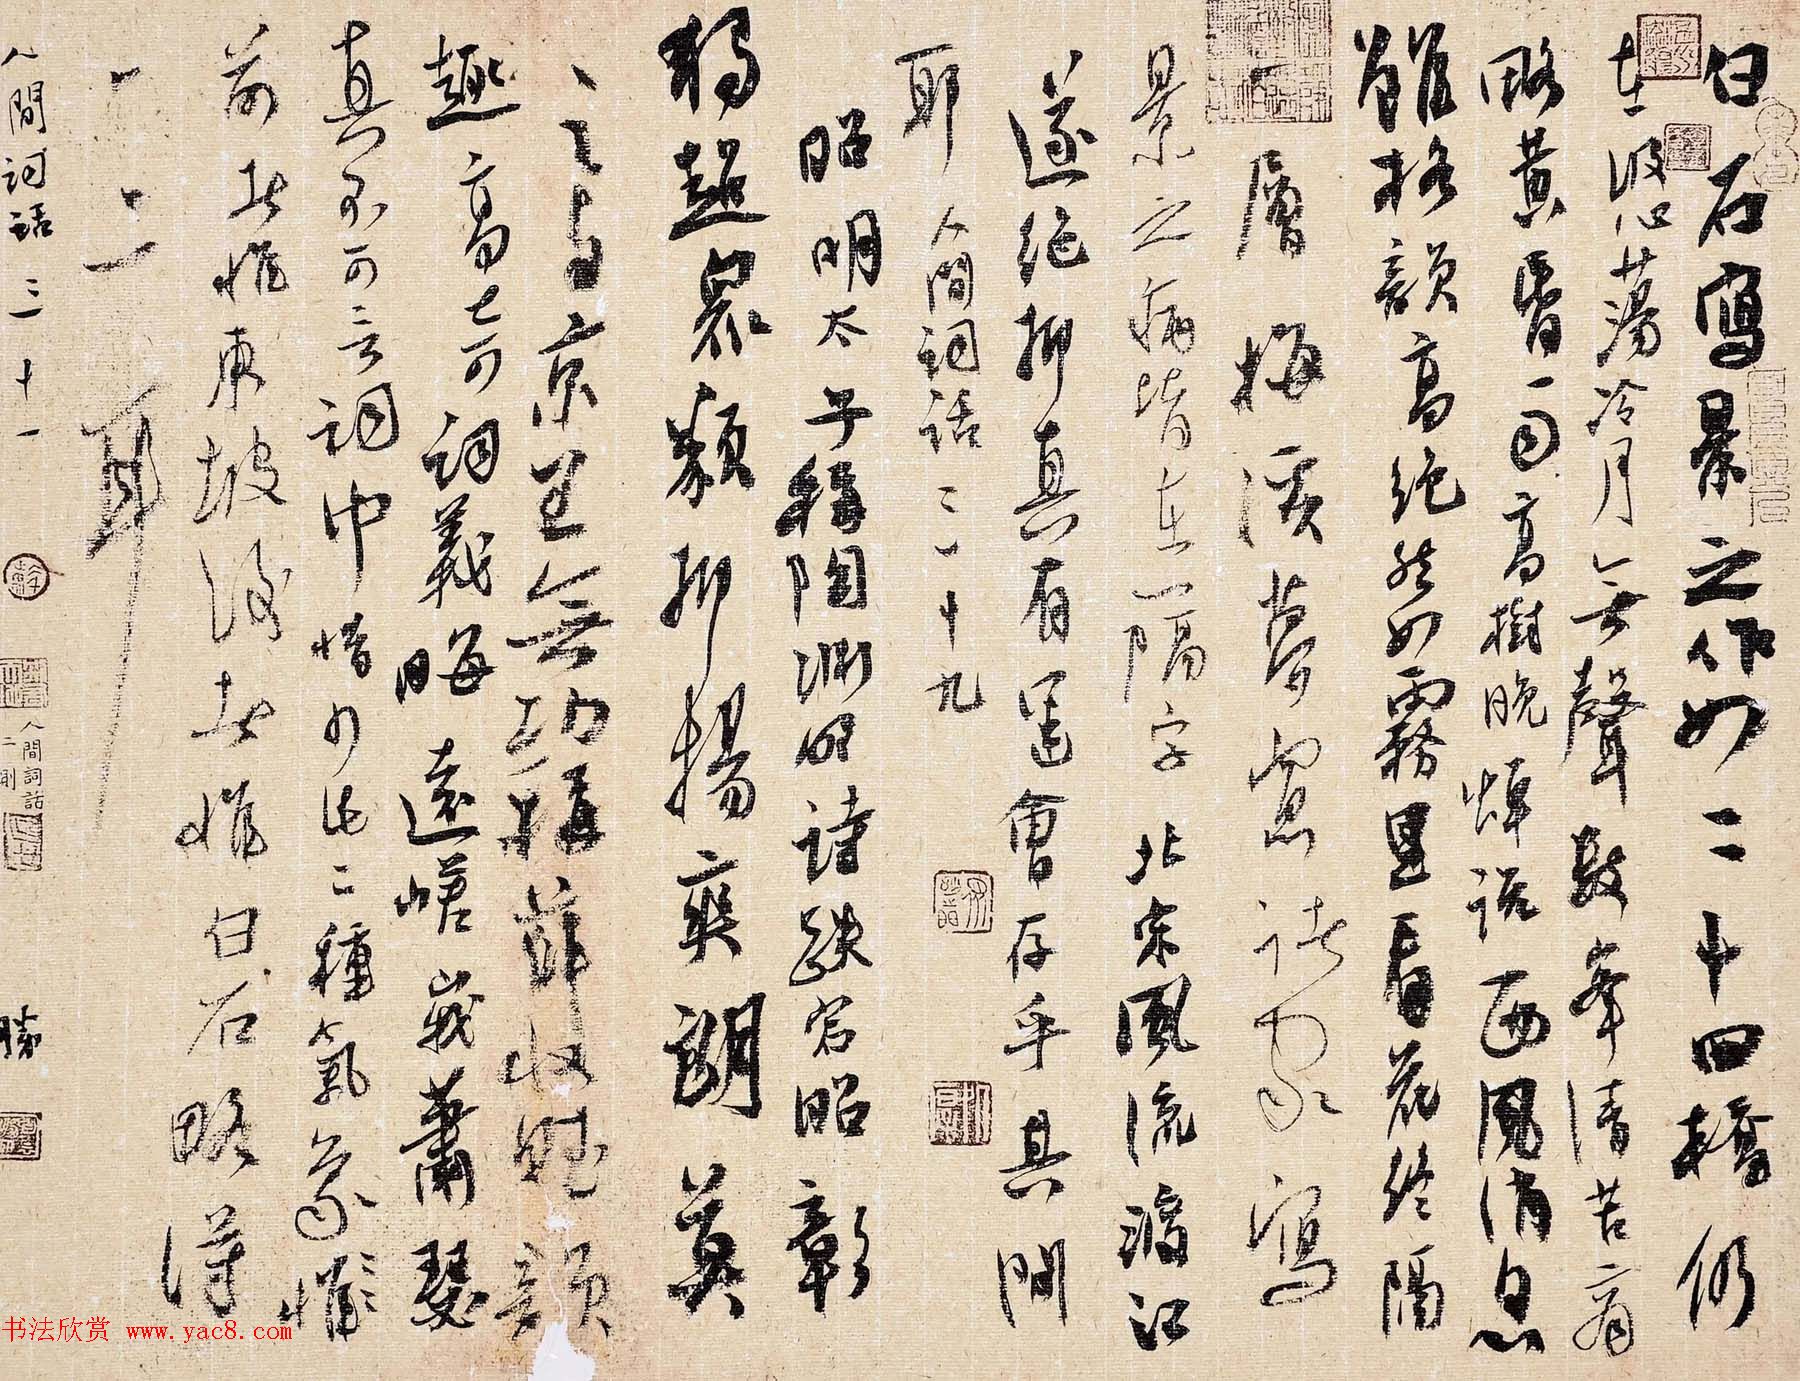 白石寫景之作如二十四橋仍
在波心蕩冷月無聲數峯清苦商
略黃昏雨高樹晚蟬說西風消息
雖格韻高絕然如霧里看花終隔
一層梅溪夢窗諸家寫
景之病皆在一隔字北宋風流渡江
遂絕抑真有運會存乎其間
耶 人間詞話三十九
昭明太子稱陶淵明詩跌宕昭彰
獨超眾類抑揚爽朗莫
之與京王無功稱薛收賦韻
趣高奇詞義晦遠嵯峨蕭瑟
真不可言詞中惜少此二種氣象惟
前者惟東坡後者惟白石略得
一二耳
人間詞話三十一
人間詞話
二則
勝
书法欣赏 www.yac8.com